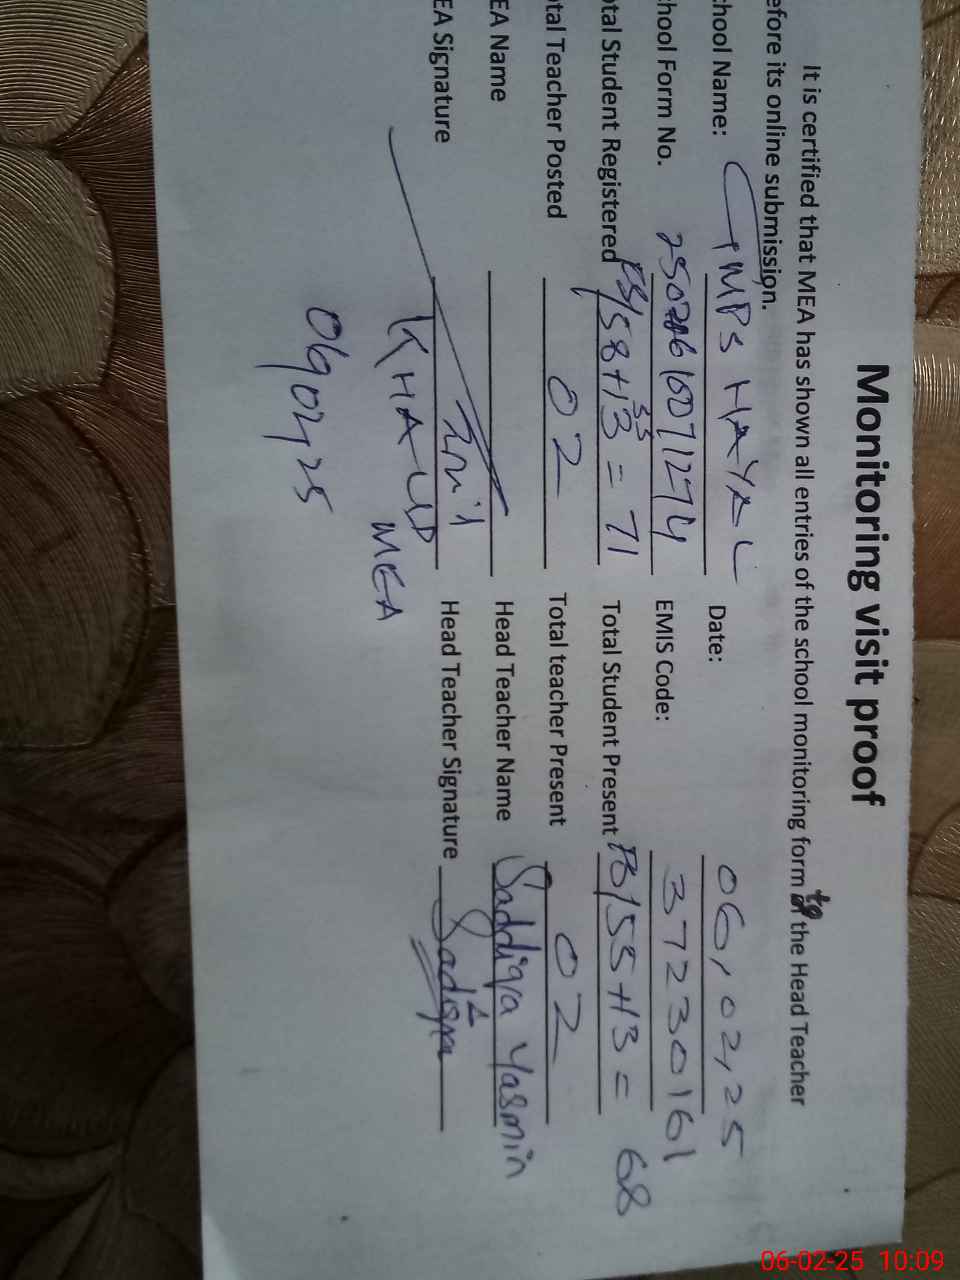 Monitoring visit proof
It is certified that MEA has shown all entries of the school monitoring form to the Head Teacher
efore its online submission.
chool Name: GMPS HAYAL Date: 06,02,25
chool Form No. EMIS Code: 37230161
otal Student Registered 58+13 = 71 Total Student Present 155+13 = 68
tal Teacher Posted 02 Total teacher Present 02
EA Name Head Teacher Name Saddiqa Yasmin
EA Signature Head Teacher Signature Sadiqa
KHALID
MEA
06,02,25
06-02-25 10:09